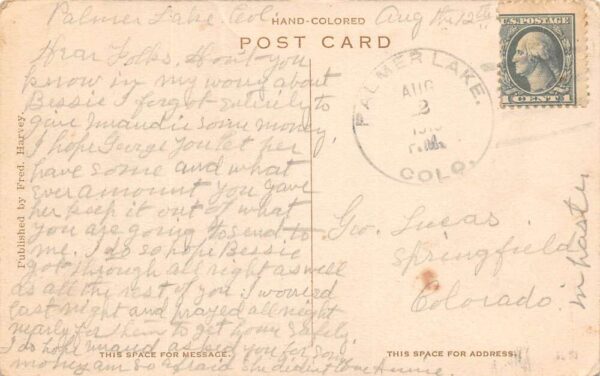 Palmer Lake. Col.
Aug 12th
HAND-COLORED
POST CARD
Dear Folks, Don't you
know in my worry about
Bessie I forgot entirely to
gave some money,
I hope George you let her
have some and what
ever amount you gave
her keep it out of what
you are going to send to
me. I do so hope Bessie
got through all right as well
as all the rest of you. I worried
last night and prayed all night
nearly for them to get home safely,
I do hope asked you for some
money am so afraid she didn't
Published by Fred. Harvey.
THIS SPACE FOR MESSAGE.
PALMER LAKE.
AUG
COLO.
U.S. POSTAGE
1 CENT 1
Geo. Lucas.
Springfield
Colorado.
in haste
THIS SPACE FOR ADDRESS.